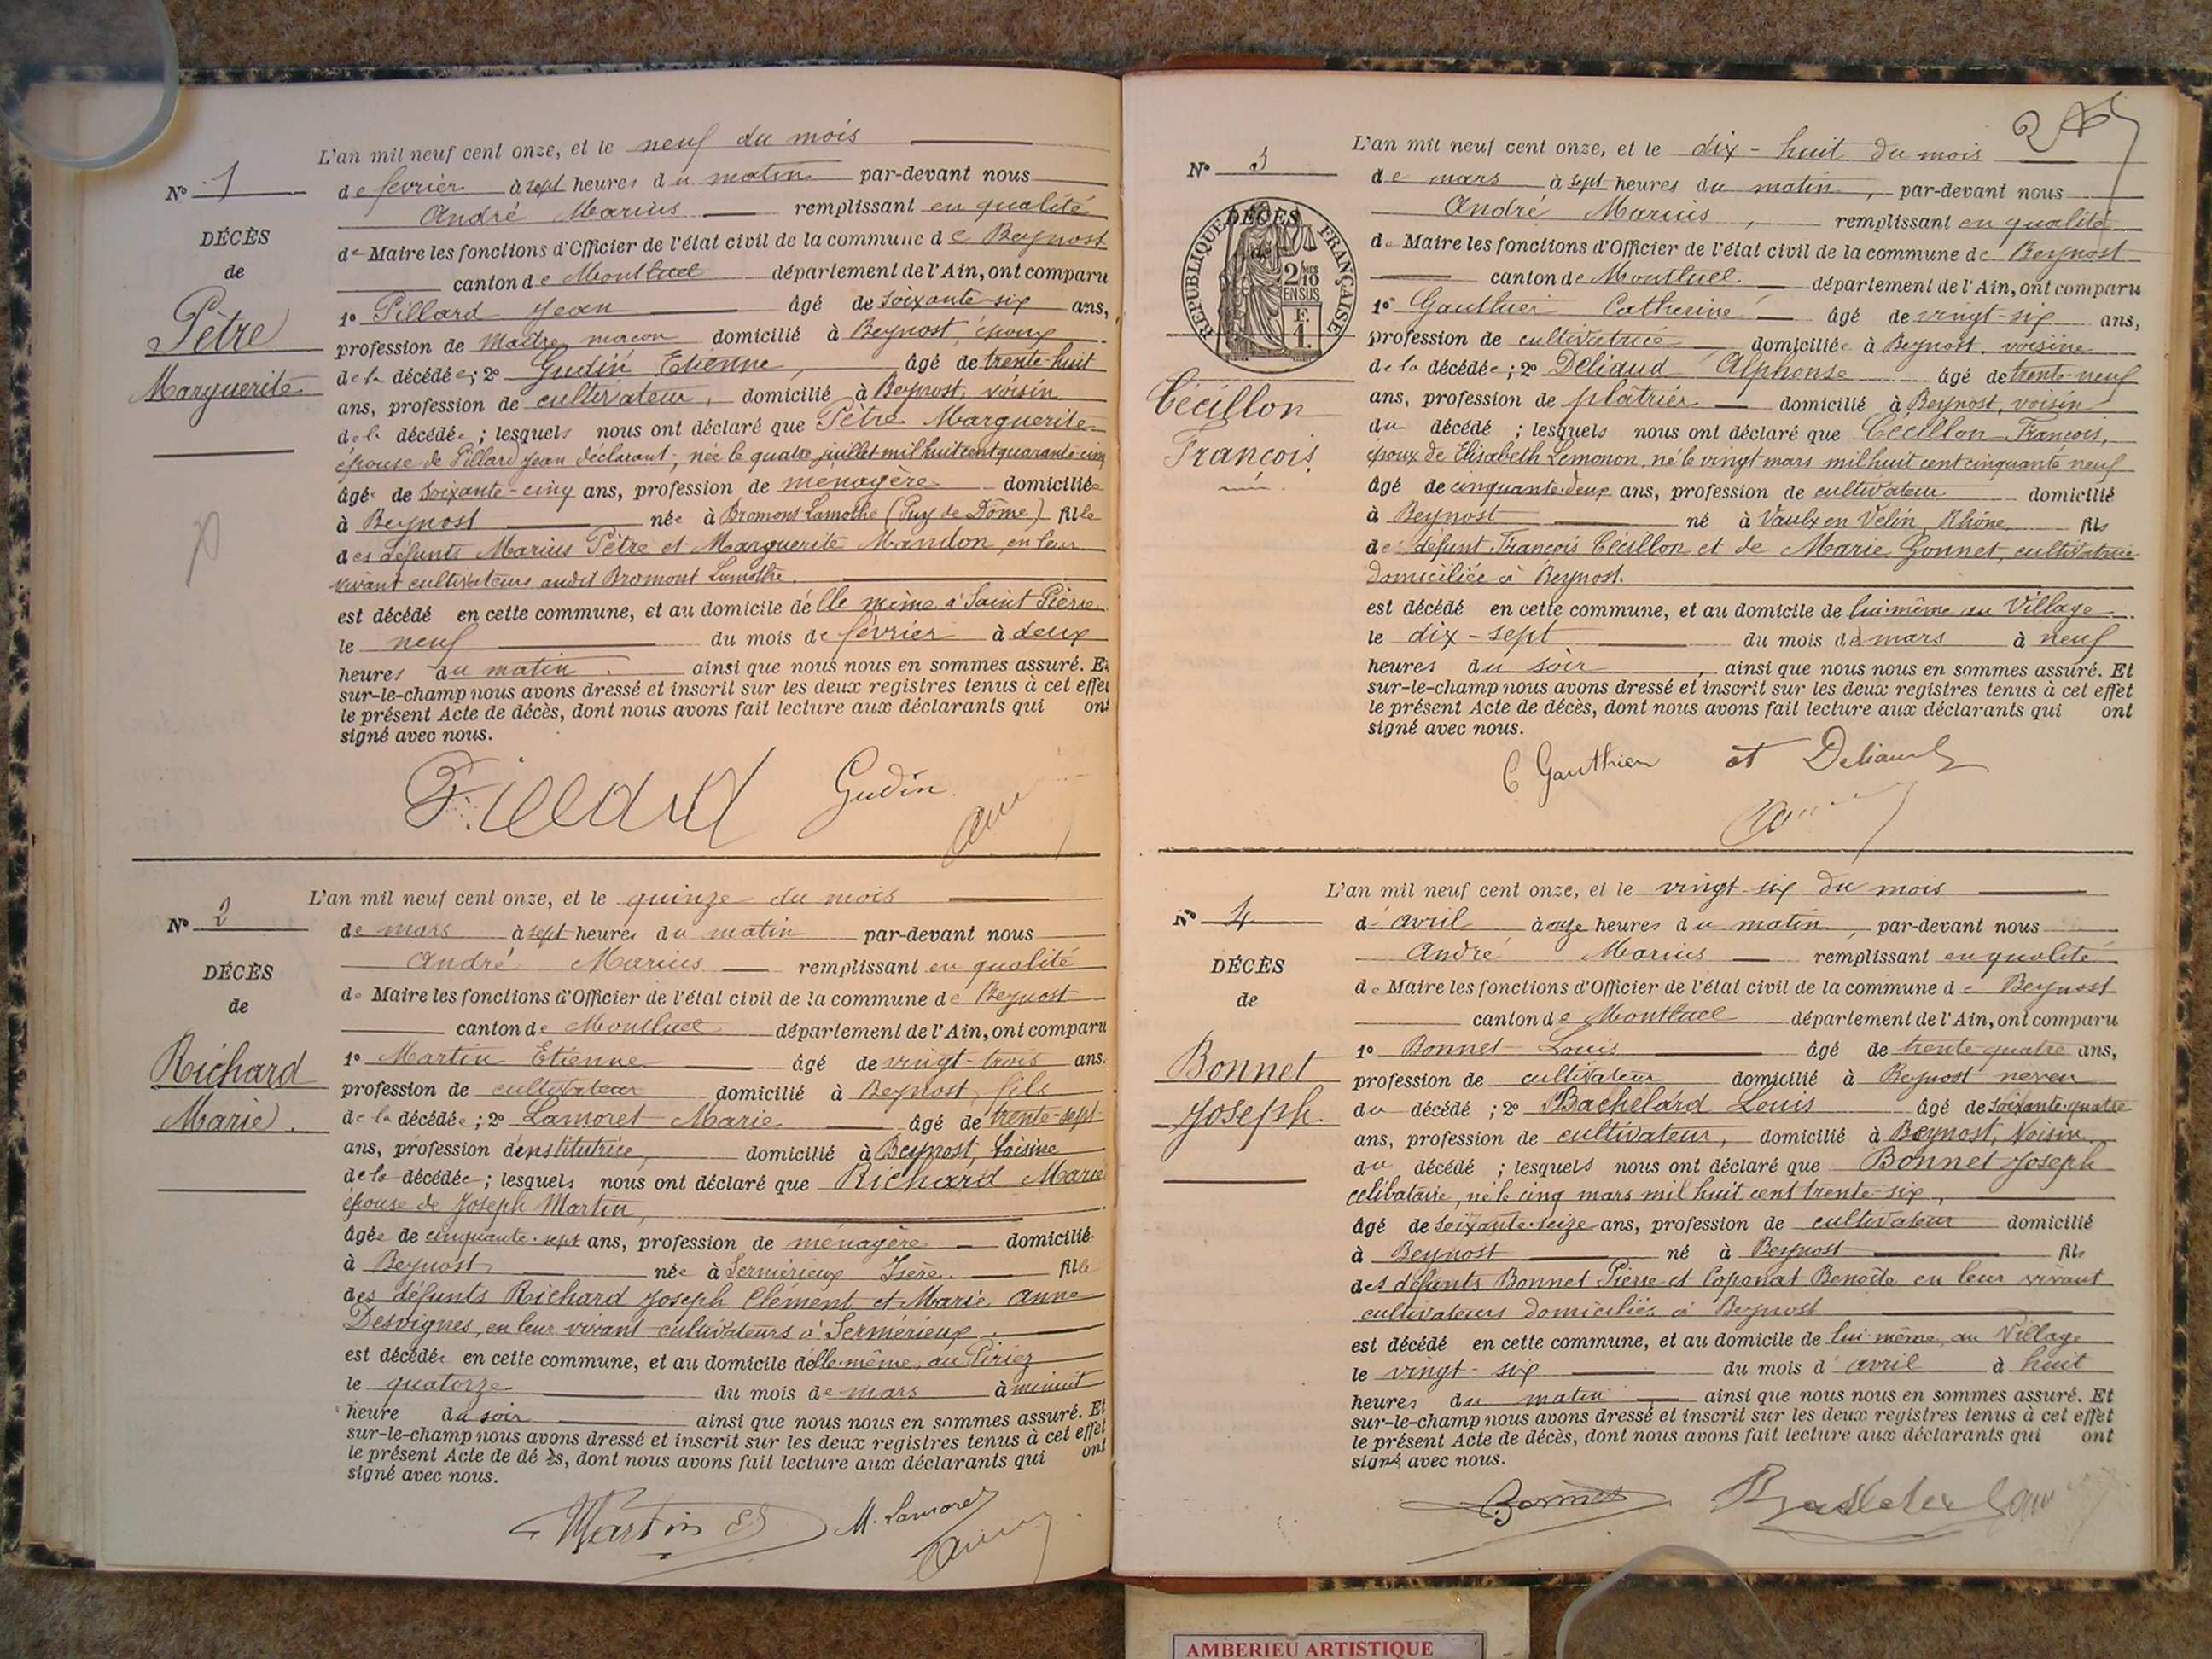 L'an mil neuf cent onze, et le neuf du mois
N° 1
de février à sept heures du matin par-devant nous
André Marius remplissant en qualité
DÉCÈS
de Maire les fonctions d'Officier de l'état civil de la commune de Beynost
de
canton de Montluel département de l'Ain, ont comparu
Pètre
Marguerite
1° Pillard Jean âgé de soixante-six ans,
profession de maître maçon domicilié à Beynost, époux
de la décédée; 2° Gudin Etienne, âgé de trente-huit
ans, profession de cultivateur, domicilié à Beynost, voisin
de la décédée; lesquels nous ont déclaré que Pètre Marguerite
épouse de Pillard Jean déclarant, née le quatre juillet mil huit cent quarante-cinq
âgée de soixante-cinq ans, profession de ménagère domiciliée
à Beynost née à Bromont Lamothe (Puy de Dôme) fille
des défunts Marius Pètre et Marguerite Mandon, en leur
vivant cultivateurs audit Bromont Lamothe.
est décédé en cette commune, et au domicile d'elle même à Saint Pierre
le neuf du mois de février à deux
heures du matin. ainsi que nous nous en sommes assuré. Et
sur-le-champ nous avons dressé et inscrit sur les deux registres tenus à cet effet
le présent Acte de décès, dont nous avons fait lecture aux déclarants qui ont
signé avec nous.
Pillard Gudin
L'an mil neuf cent onze, et le quinze du mois
N° 2
de mars à sept heures du matin par-devant nous
André Marius remplissant en qualité
DÉCÈS
de Maire les fonctions d'Officier de l'état civil de la commune de Beynost
de
canton de Montluel département de l'Ain, ont comparu
Richard
Marie.
1° Martin Etienne âgé de vingt-trois ans.
profession de cultivateur domicilié à Beynost, fils
de la décédée; 2° Lamoret Marie âgé de trente-sept
ans, profession d'institutrice, domicilié à Beynost, voisine
de la décédée; lesquels nous ont déclaré que Richard Marie
épouse de Joseph Martin,
âgée de cinquante-sept ans, profession de ménagère domicilié
à Beynost née à Sermérieux Isère. fille
des défunts Richard Joseph Clément et Marie Anne
Desvignes, en leur vivant cultivateurs à Sermérieux.
est décédée en cette commune, et au domicile d'elle-même, au Piriez
le quatorze du mois de mars à minuit
heure du soir ainsi que nous nous en sommes assuré. Et
sur-le-champ nous avons dressé et inscrit sur les deux registres tenus à cet effet
le présent Acte de décès, dont nous avons fait lecture aux déclarants qui ont
signé avec nous.
Martin M. Lamoret
L'an mil neuf cent onze, et le dix-huit du mois
N° 3
de mars à sept heures du matin, par-devant nous
André Marius, remplissant en qualité
DÉCÈS
de
RÉPUBLIQUE FRANÇAISE
2/10 EN SUS
F. 1.
de Maire les fonctions d'Officier de l'état civil de la commune de Beynost
canton de Montluel. département de l'Ain, ont comparu
1° Gauthier Catherine âgé de vingt-six ans,
profession de cultivatrice domiciliée à Beynost. voisine
Cécillon
François.
de la décédée; 2° Deliaud Alphonse âgé de trente-neuf
ans, profession de plâtrier domicilié à Beynost, voisin
du décédé; lesquels nous ont déclaré que Cécillon François,
époux de Elisabeth Lemonon, né le vingt mars mil huit cent cinquante neuf
âgé de cinquante-deux ans, profession de cultivateur domicilié
à Beynost né à Vaulx en Velin, Rhône fils
de défunt François Cécillon et de Marie Gonnet, cultivatrice
domiciliée à Beynost.
est décédé en cette commune, et au domicile de lui-même au Village
le dix-sept du mois de mars à neuf
heures du soir, ainsi que nous nous en sommes assuré. Et
sur-le-champ nous avons dressé et inscrit sur les deux registres tenus à cet effet
le présent Acte de décès, dont nous avons fait lecture aux déclarants qui ont
signé avec nous.
C Gauthier et Deliaud
L'an mil neuf cent onze, et le vingt-six du mois
N° 4
d'avril à onze heures du matin, par-devant nous
André Marius remplissant en qualité
DÉCÈS
de Maire les fonctions d'Officier de l'état civil de la commune de Beynost
de
canton de Montluel département de l'Ain, ont comparu
Bonnet
Joseph.
1° Bonnet Louis âgé de trente-quatre ans,
profession de cultivateur domicilié à Beynost neveu
du décédé; 2° Bachelard Louis âgé de soixante-quatre
ans, profession de cultivateur, domicilié à Beynost, Voisin
du décédé; lesquels nous ont déclaré que Bonnet Joseph
célibataire, né le cinq mars mil huit cent trente-six,
âgé de soixante-seize ans, profession de cultivateur domicilié
à Beynost né à Beynost fils
des défunts Bonnet Pierre et Coponat Benoîte en leur vivant
cultivateurs domiciliés à Beynost
est décédé en cette commune, et au domicile de lui-même, au Village
le vingt-six du mois d'avril à huit
heures du matin ainsi que nous nous en sommes assuré. Et
sur-le-champ nous avons dressé et inscrit sur les deux registres tenus à cet effet
le présent Acte de décès, dont nous avons fait lecture aux déclarants qui ont
signé avec nous.
Bonnet
AMBERIEU ARTISTIQUE